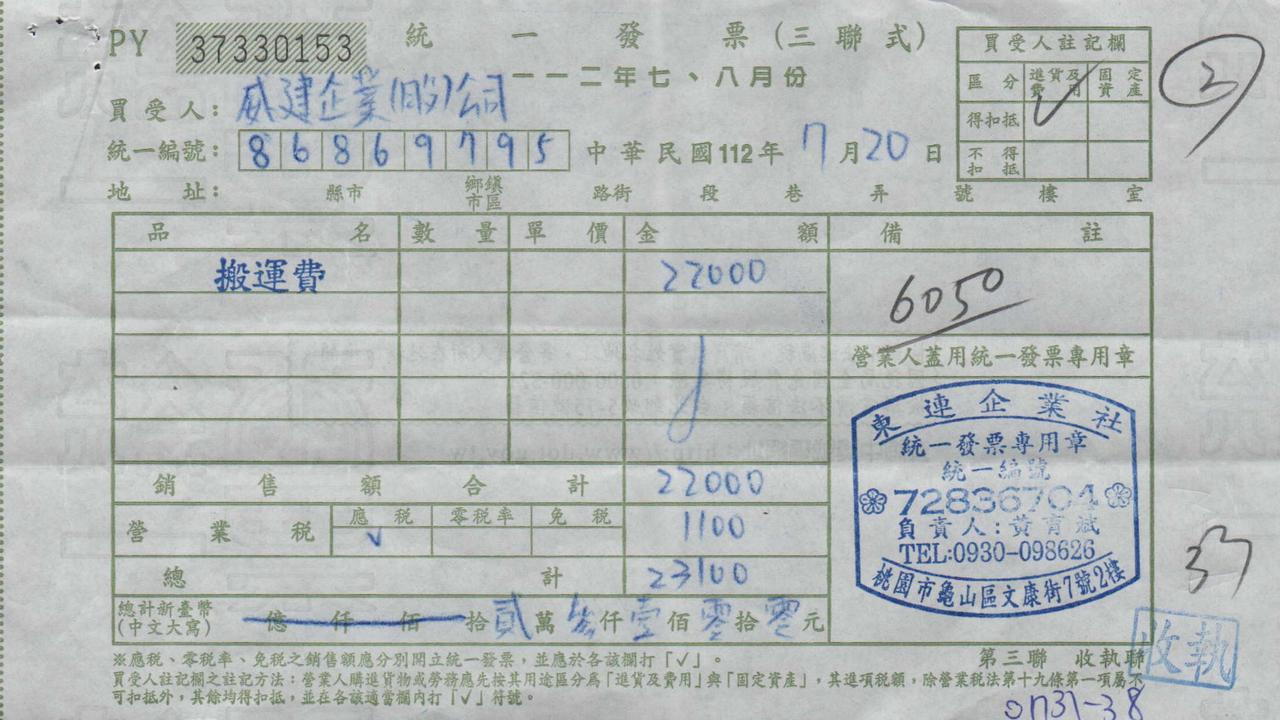 PY 37330153
統一發票(三聯式)
一一二年七、八月份
買受人: 威建企業(股)公司
統一編號: 86869795 中華民國112年7月20日
地址: 縣市 鄉鎮市區 路街 段 巷 弄 號 樓 室
買受人註記欄
區分 進貨及費用 固定資產
得扣抵 ✓
不得扣抵
2
品名 數量 單價 金額 備註
搬運費 22000
6050
營業人蓋用統一發票專用章
東連企業社
統一發票專用章
統一編號
72836704
負責人:黃育斌
TEL:0930-098626
桃園市龜山區文康街7號2樓
銷售額合計 22000
營業稅 應稅 ✓ 零稅率 免稅 1100
總計 23100
總計新臺幣
(中文大寫) 億仟佰拾貳萬參仟壹佰零拾零元
37
※應稅、零稅率、免稅之銷售額應分別開立統一發票,並應於各該欄打「✓」。
買受人註記欄之註記方法:營業人購進貨物或勞務應先按其用途區分為「進貨及費用」與「固定資產」,其進項稅額,除營業稅法第十九條第一項屬不
可扣抵外,其餘均得扣抵,並在各該適當欄內打「✓」符號。
第三聯 收執聯
收執
0731-38